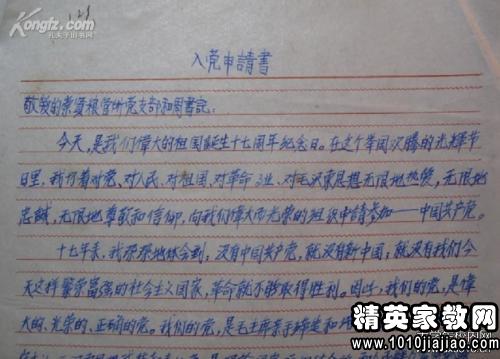 Kongfz.com
孔夫子旧书网
入党申請書
今天，是我们偉大的祖国誕生十七周年纪念日。在这个举国欢腾的光輝节
日里，我怀着对党、对人民、对祖国、对革命事业、对毛泽东思想无限地热爱，无限地
忠誠，无限地尊敬和信仰，向我们偉大而光荣的组织申請参加——中国共产党。
十七年来，我深深地体会到：没有中国共产党，就没有新中国；就没有我们今
天这样繁荣富强的社会主义国家，革命就不能取得胜利。因此，我们的党，是偉
大的、光荣的、正确的党。我们的党，是毛主席亲手締造和
精英家教网
www.1010jiajiao.com